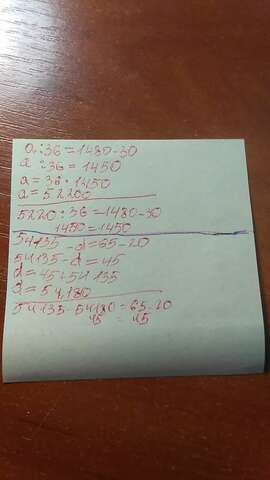 a : 36 = 1480-30
a : 36 = 1450
a = 36 · 1450
a = 52200
5220 : 36 = 1480-30
1450 = 1450
54135 - d = 65-20
54135 - d = 45
d = 45+54135
d = 54180
54135-54180 = 65-20
45 = 45